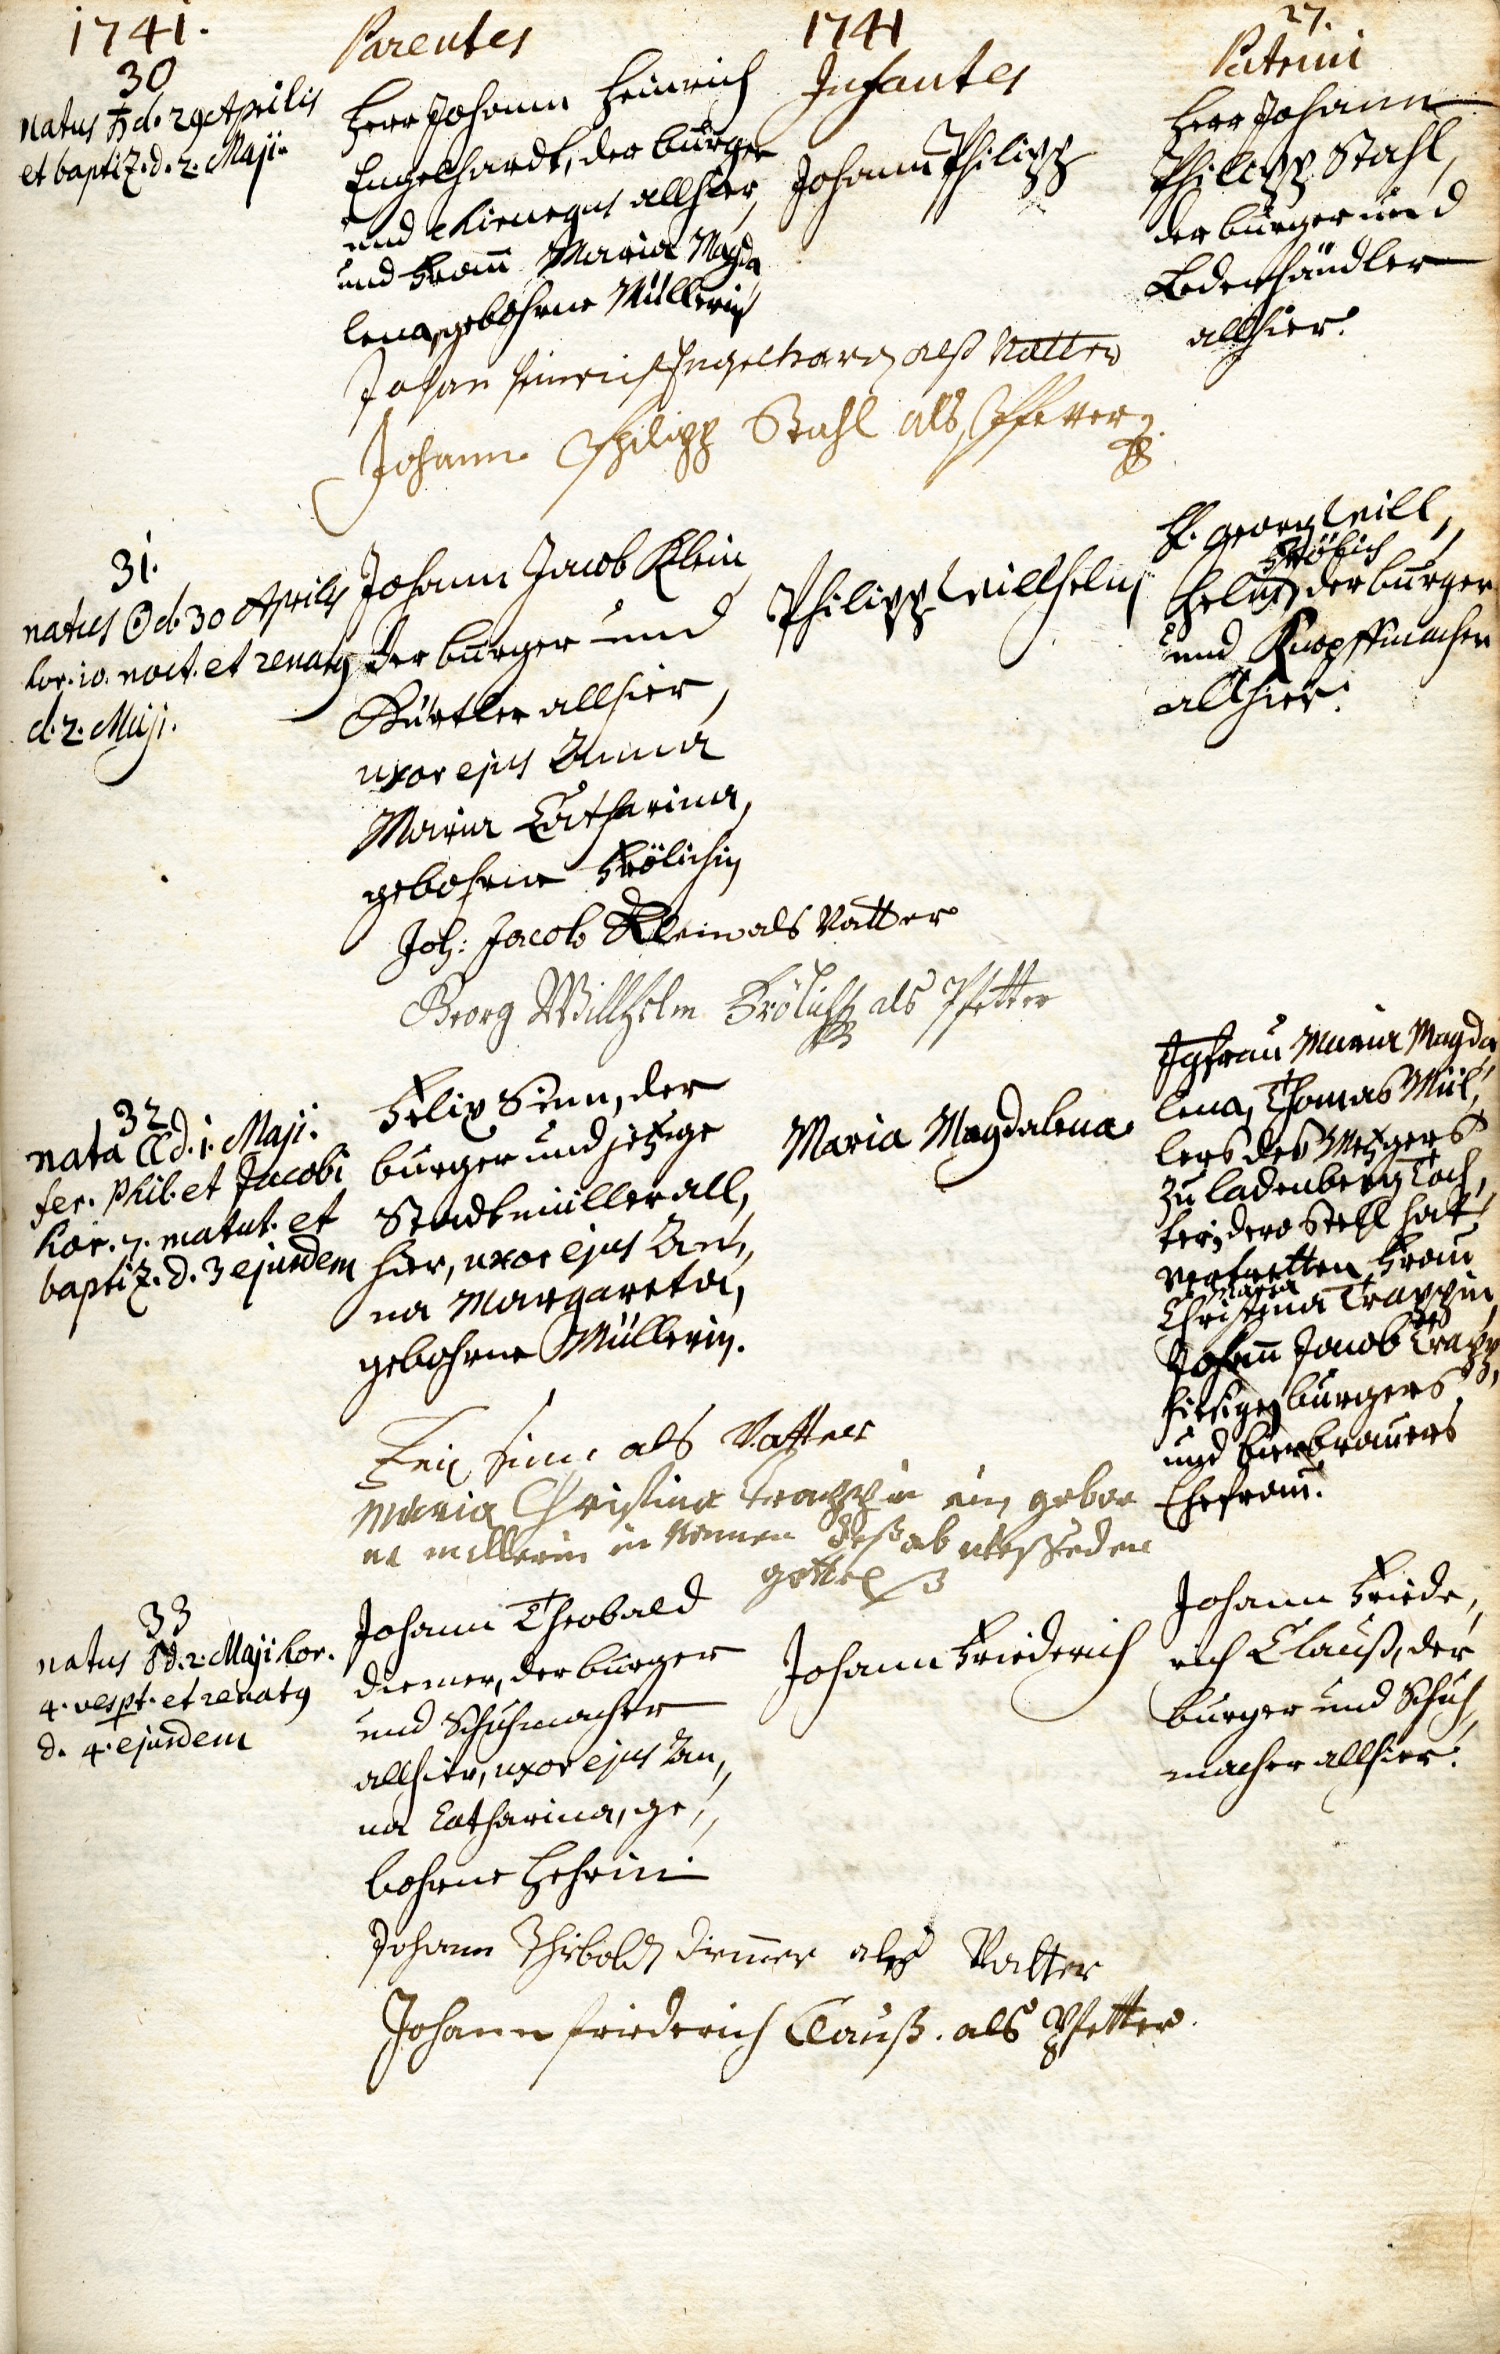 1741.
Parentes
1741
Infantes
27.
Patrini
30
natus ♄ d. 29 Aprilis
et baptiz. d. 2. Maji.
Herr Johann Heinrich
Engelhardt, der burger
und Chirurgus allhier,
und Frau Maria Magda
lena, gebohrne Müllerin
Johann Philipp
Herr Johann
Philipp Stahl,
der burger und
Lederhändler
allhier.
Johan Heinrich Engelhard alß Vatter
Johann Philipp Stahl als Pfetter
31.
natus ☉ d. 30 Aprilis
hor. 10. noct. et renatus
d. 2. Maji.
Johann Jacob Klein
der burger und
Gürtler allhier,
uxor ejus Anna
Maria Catharina,
gebohrne Frölichin
Philipp Willhelm
H. Georg Will,,
Frölich
helm, der burger
und Knopffmacher
allhier.
Joh: Jacob Klein als Vatter
Georg Willhelm Frölich als Pfetter
32.
nata ☾ d. 1. Maji.
fer. Phil. et Jacobi
hor. 7. matut. et
baptiz. d. 3 ejusdem
Felix Sinn, der
burger und jetzige
Stadtmüller all,,
hier, uxor ejus An,,
na Margareta,
gebohrne Müllerin.
Maria Magdalena.
Jgfrau Maria Magda,,
lena, Thomas Mül,,
lers des Metzgers
zu Ladenberg Toch,,
ter, dero Stell hat
vertretten Frau
Maria
Christina Trappin,
des
Johann Jacob Trapp,
hiesigen burgers
und bierbrauers
Ehefrau.
Felix Sinn als Vatter
Maria Christina Trappin ein gebor
ne millerin in Namen deß ab
gottel
33
natus ♂ d. 2. Maji hor.
4. vespt. et renatus
d. 4. ejusdem
Johann Theobald
Diemer, der burger
und Schuhmacher
allhier, uxor ejus An,,
na Catharina, ge,,
bohrne Hehrin.
Johann Friederich
Johann Friede,,
rich Clauß, der
burger und Schuh,,
macher allhier.
Johann Thebold Diemer als Vatter
Johann Friederich Clauß. als Pfetter.